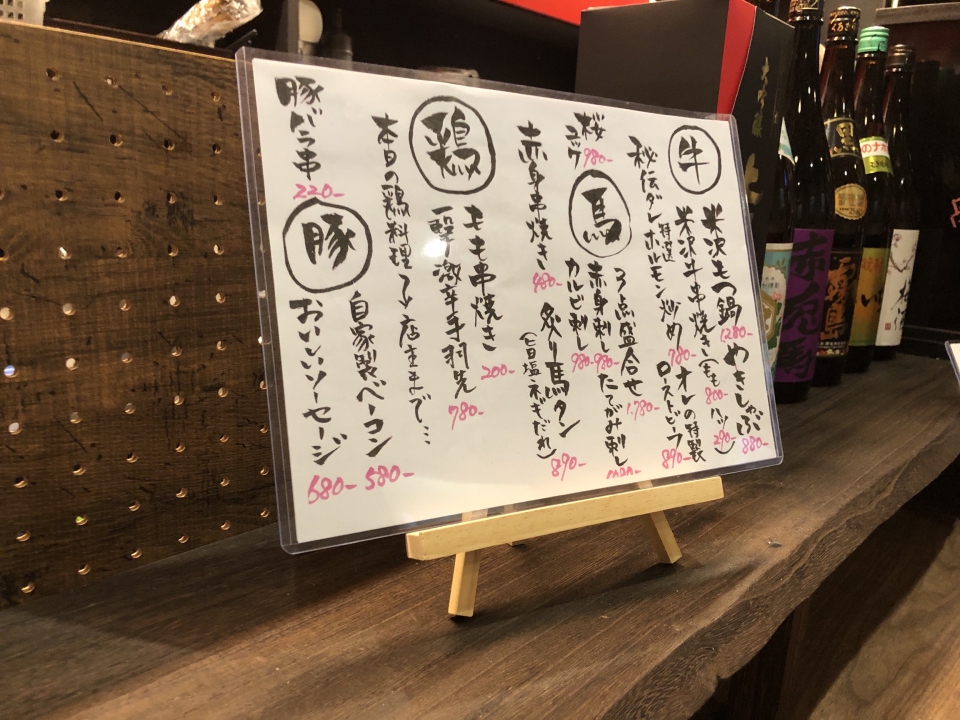 牛
米沢もつ鍋 1280-
めきしゃぶ 880-
米沢牛串焼き(もも800- ハツ290-)
オレの特製ローストビーフ 890-
秘伝ダレ 特選ホルモン炒め 780-
馬
3点盛合せ 1,780-
赤身刺し 980-
たてがみ刺し
カルビ刺し 980-
炙り馬タン 890-
(旨塩・ネギだれ)
桜ユッケ 980-
赤身串焼き 480-
鶏
もも串焼き 200-
激辛手羽先 780-
本日の鶏料理
店主まで…
豚
自家製ベーコン 580-
おいしいソーセージ 680-
豚バラ串 220-